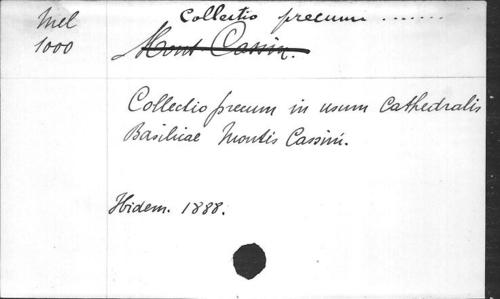 Mel
1000
Collectio precum .......
Mont Cassin.
Collectio precum in usum Cathedralis
Basilicae Montis Cassini.
Ibidem. 1888.